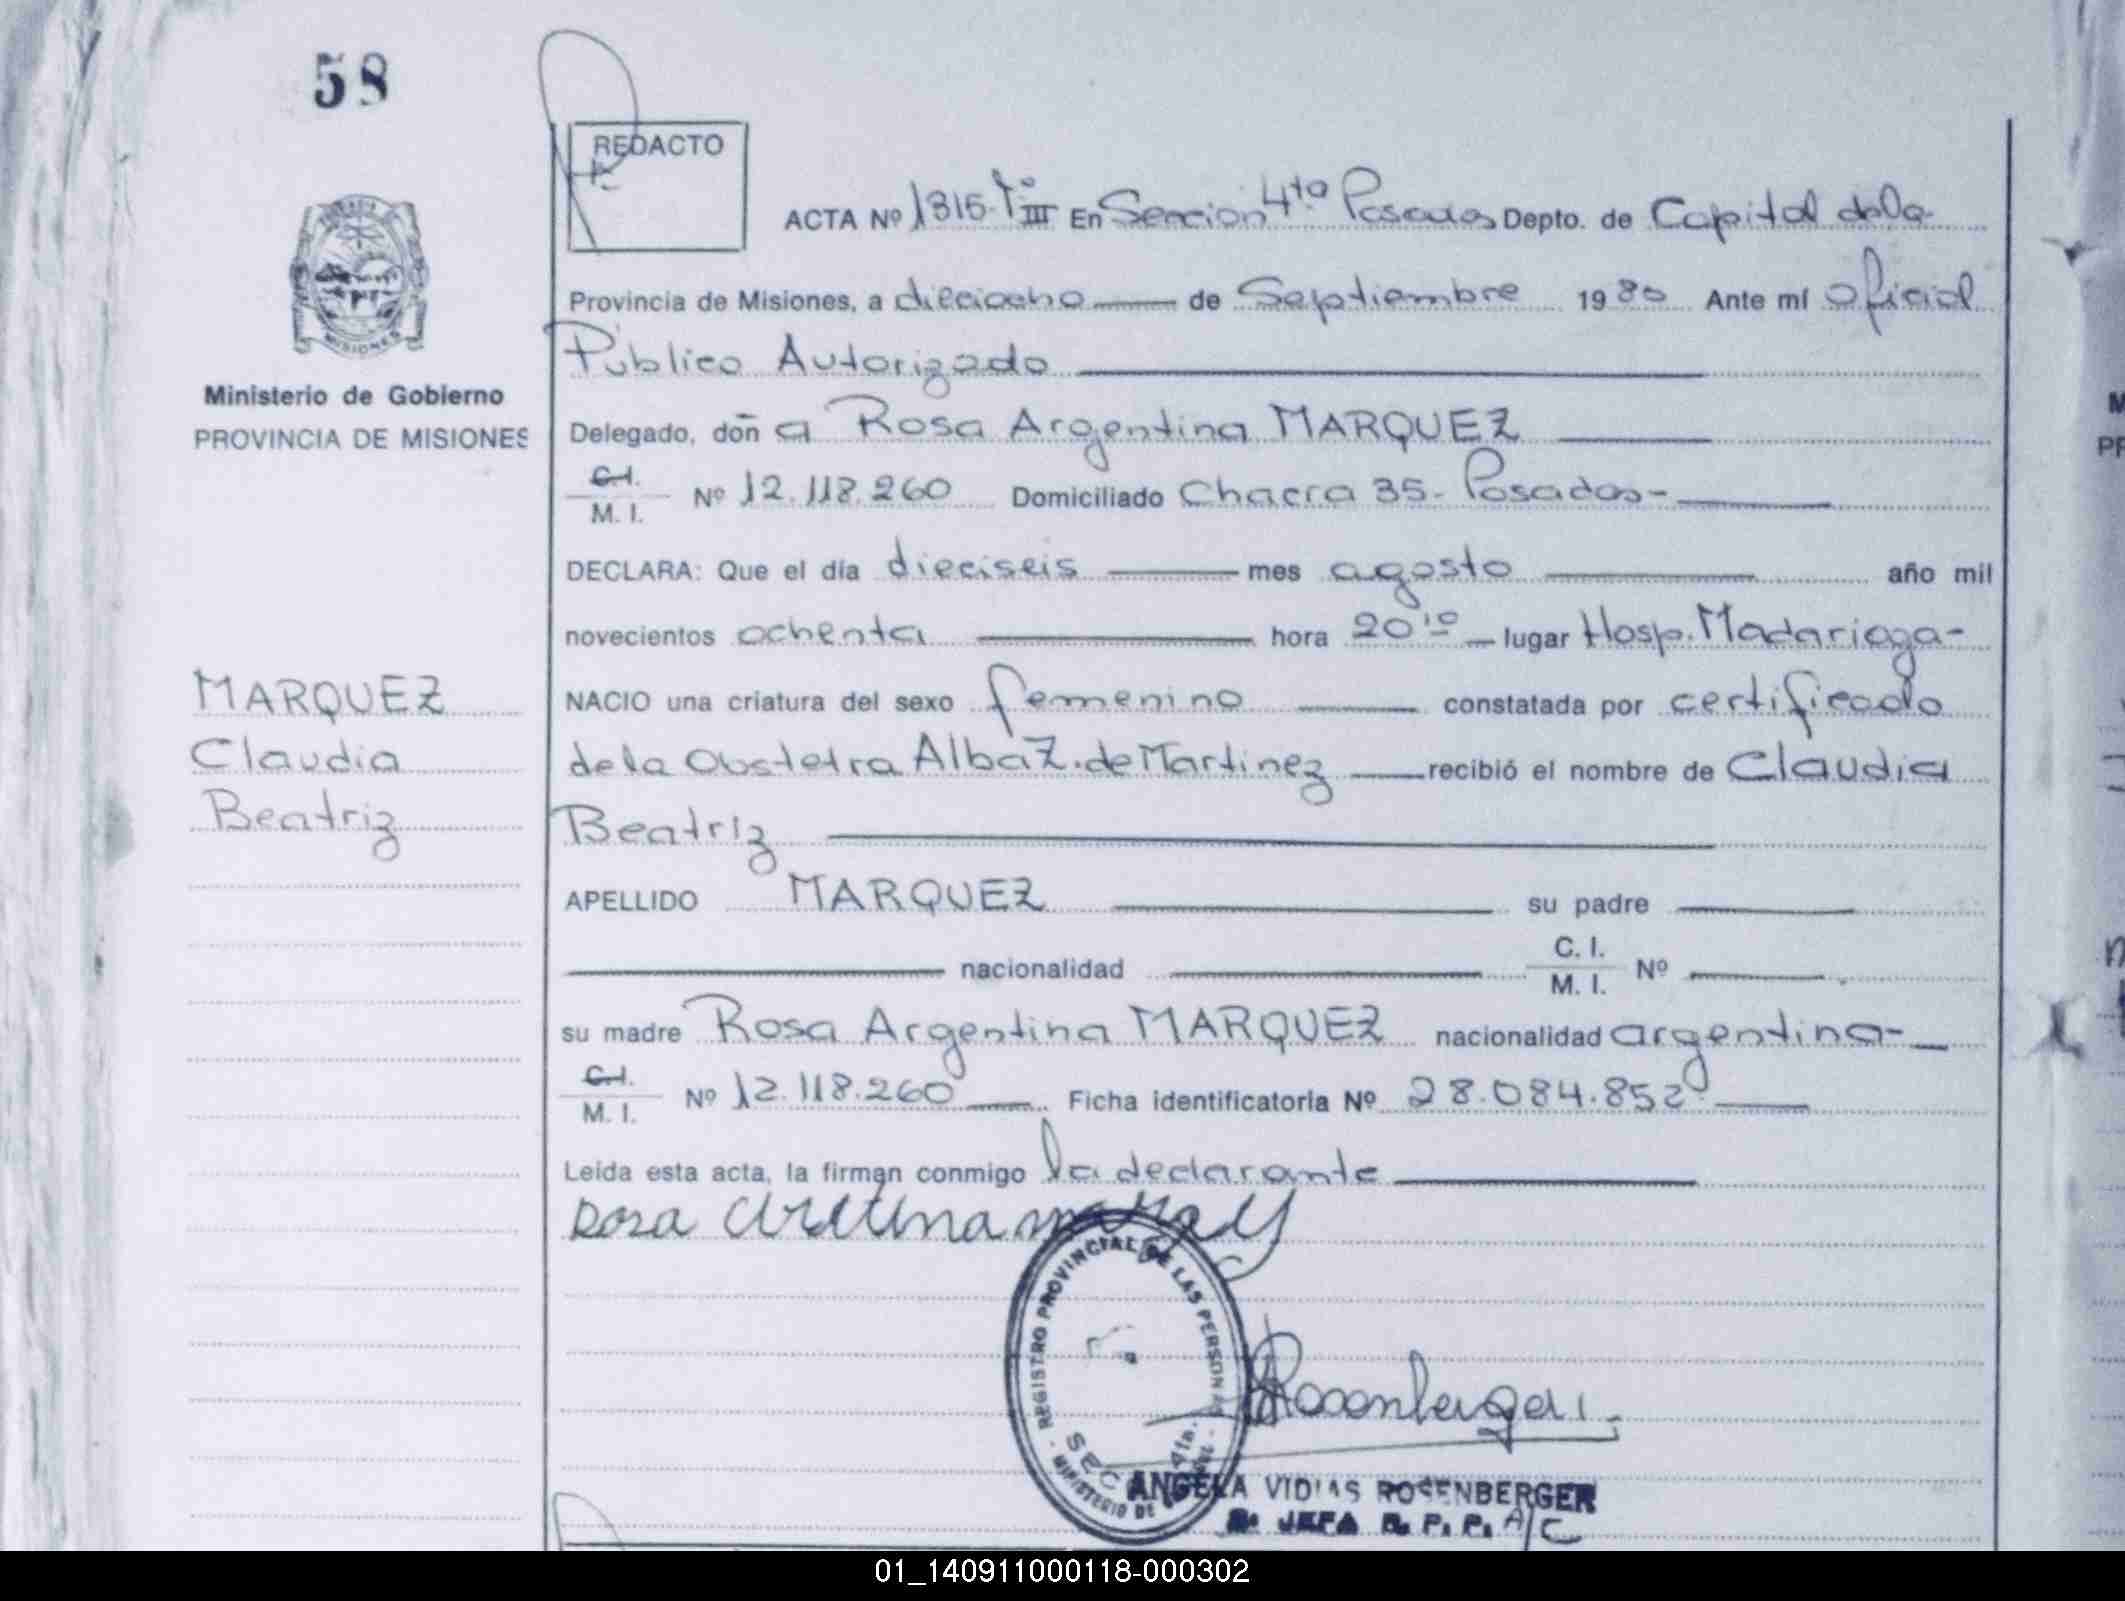 58
REDACTO
ACTA Nº 1315-Tº III En Seccion 4ta Posadas Depto. de Capital de la
Provincia de Misiones, a dieciocho de Septiembre 1980 Ante mí Oficial
Público Autorizado
Ministerio de Gobierno
PROVINCIA DE MISIONES
Delegado, don̄ a Rosa Argentina MARQUEZ
C.I.
M. I. Nº 12.118.260 Domiciliado Chacra 35- Posadas-
DECLARA: Que el día dieciseis mes agosto año mil
novecientos ochenta hora 20¹⁰ lugar Hosp. Madariaga-
MARQUEZ
Claudia
Beatriz
NACIO una criatura del sexo femenino constatada por certificado
de la Obstetra Alba Z. de Martinez recibió el nombre de Claudia
Beatriz
APELLIDO MARQUEZ su padre
nacionalidad C. I.
M. I. Nº
su madre Rosa Argentina MARQUEZ nacionalidad argentina-
C.I.
M. I. Nº 12.118.260 Ficha identificatoria Nº 28.084.852
Leída esta acta, la firman conmigo la declarante
Rosa
REGISTRO PROVINCIAL DE LAS PERSONAS
SEC 4ta.
MINISTERIO DE
Rosenberger
ANGELA VIDIAS ROSENBERGER
JEFA R. P. P. A/C
01_140911000118-000302